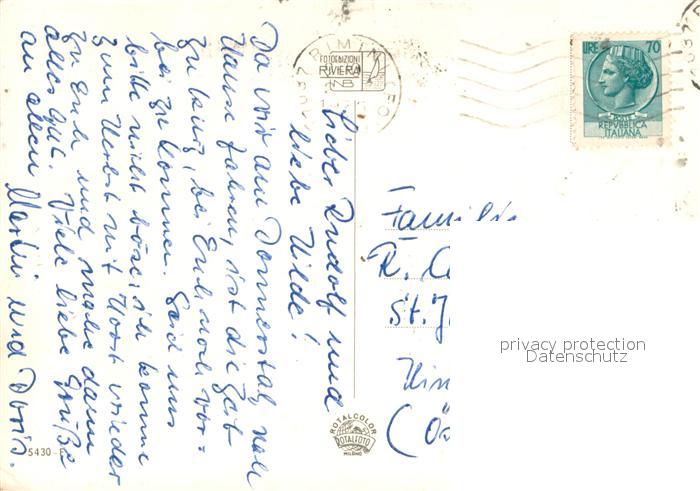 Lieber Rudolf und
liebe Hilde!
Da wir am Donnerstag nach
Hause fahren, ist die Zeit
zu kurz, bei Euch noch vor-
bei zu kommen. Seid uns
bitte nicht böse, ich komme
zum Herbst mit Horst wieder
zu Euch und mache dann
alles gut. Viele liebe Grüße
an allen Martin und Doris.
FOTOEDIZIONI
RIVIERA
NB
LIRE 70
POSTE
REPVBBLICA
ITALIANA
Familie
R.
St.
(Ö
privacy protection
Datenschutz
ROTALCOLOR
ROTALFOTO
MILANO
5430